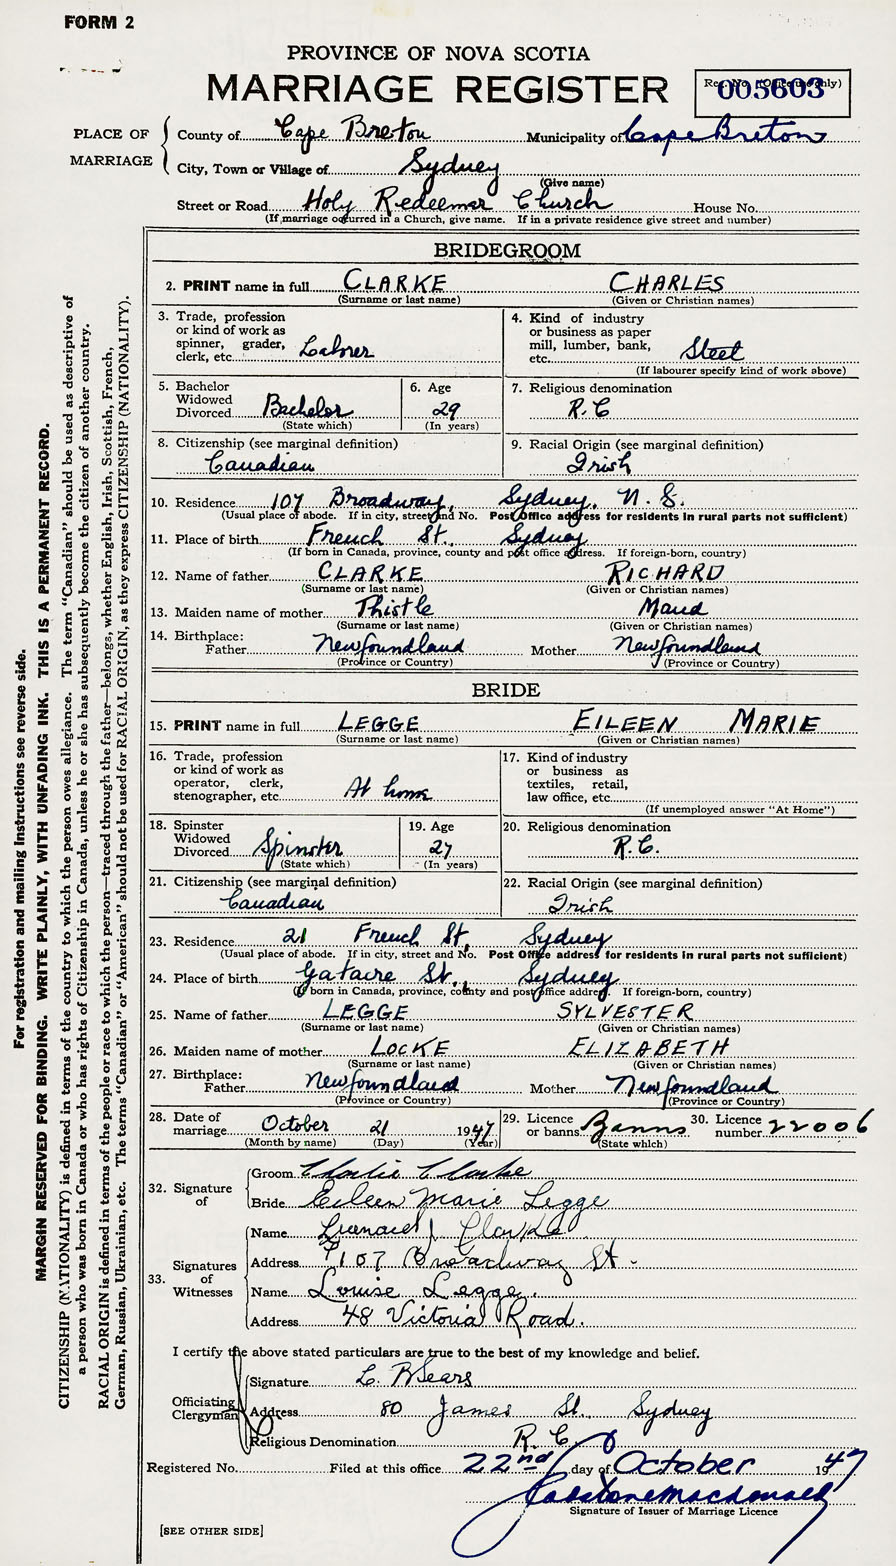 FORM 2
PROVINCE OF NOVA SCOTIA
MARRIAGE REGISTER
Reg. No. (Office use only)
005603
PLACE OF MARRIAGE
County of Cape Breton Municipality of Cape Breton
City, Town or Village of Sydney
(Give name)
Street or Road Holy Redeemer Church House No.
(If marriage occurred in a Church, give name. If in a private residence give street and number)
BRIDEGROOM
2. PRINT name in full CLARKE CHARLES
(Surname or last name) (Given or Christian names)
3. Trade, profession
or kind of work as
spinner, grader,
clerk, etc. Laborer
4. Kind of industry
or business as paper
mill, lumber, bank,
etc. Steel
(If labourer specify kind of work above)
5. Bachelor
Widowed
Divorced Bachelor
(State which)
6. Age
29
(In years)
7. Religious denomination
R.C
8. Citizenship (see marginal definition)
Canadian
9. Racial Origin (see marginal definition)
Irish
10. Residence 107 Broadway, Sydney, N.S.
(Usual place of abode. If in city, street and No. Post Office address for residents in rural parts not sufficient)
11. Place of birth French St., Sydney
(If born in Canada, province, county and post office address. If foreign-born, country)
12. Name of father CLARKE RICHARD
(Surname or last name) (Given or Christian names)
13. Maiden name of mother Thistle Maud
(Surname or last name) (Given or Christian names)
14. Birthplace:
Father Newfoundland Mother Newfoundland
(Province or Country) (Province or Country)
BRIDE
15. PRINT name in full LEGGE EILEEN MARIE
(Surname or last name) (Given or Christian names)
16. Trade, profession
or kind of work as
operator, clerk,
stenographer, etc. At home
17. Kind of industry
or business as
textiles, retail,
law office, etc.
(If unemployed answer "At Home")
18. Spinster
Widowed
Divorced Spinster
(State which)
19. Age
27
(In years)
20. Religious denomination
R.C.
21. Citizenship (see marginal definition)
Canadian
22. Racial Origin (see marginal definition)
Irish
23. Residence 21 French St, Sydney
(Usual place of abode. If in city, street and No. Post Office address for residents in rural parts not sufficient)
24. Place of birth Gatacre St., Sydney
(If born in Canada, province, county and post office address. If foreign-born, country)
25. Name of father LEGGE SYLVESTER
(Surname or last name) (Given or Christian names)
26. Maiden name of mother LOCKE ELIZABETH
(Surname or last name) (Given or Christian names)
27. Birthplace:
Father Newfoundland Mother Newfoundland
(Province or Country) (Province or Country)
28. Date of
marriage October 21 1947
(Month by name) (Day) (Year)
29. Licence
or banns Banns
(State which)
30. Licence
number 22006
32. Signature of
Groom Charlie Clarke
Bride Eileen Marie Legge
33. Signatures of Witnesses
Name Leonard J Clarke
Address 107 Broadway St.
Name Louise Legge.
Address 48 Victoria Road.
I certify the above stated particulars are true to the best of my knowledge and belief.
Officiating Clergyman
Signature L. B Sears
Address 80 James St. Sydney
Religious Denomination R.C.
Registered No. Filed at this office 22nd day of October 1947
Signature of Issuer of Marriage Licence
[SEE OTHER SIDE]
For registration and mailing Instructions see reverse side.
MARGIN RESERVED FOR BINDING. WRITE PLAINLY, WITH UNFADING INK. THIS IS A PERMANENT RECORD.
CITIZENSHIP (NATIONALITY) is defined in terms of the country to which the person owes allegiance. The term "Canadian" should be used as descriptive of
a person who was born in Canada or who has rights of Citizenship in Canada, unless he or she has subsequently become the citizen of another country.
RACIAL ORIGIN is defined in terms of the people or race to which the person—traced through the father—belongs, whether English, Irish, Scottish, French,
German, Russian, Ukrainian, etc. The terms "Canadian" or "American" should not be used for RACIAL ORIGIN, as they express CITIZENSHIP (NATIONALITY).